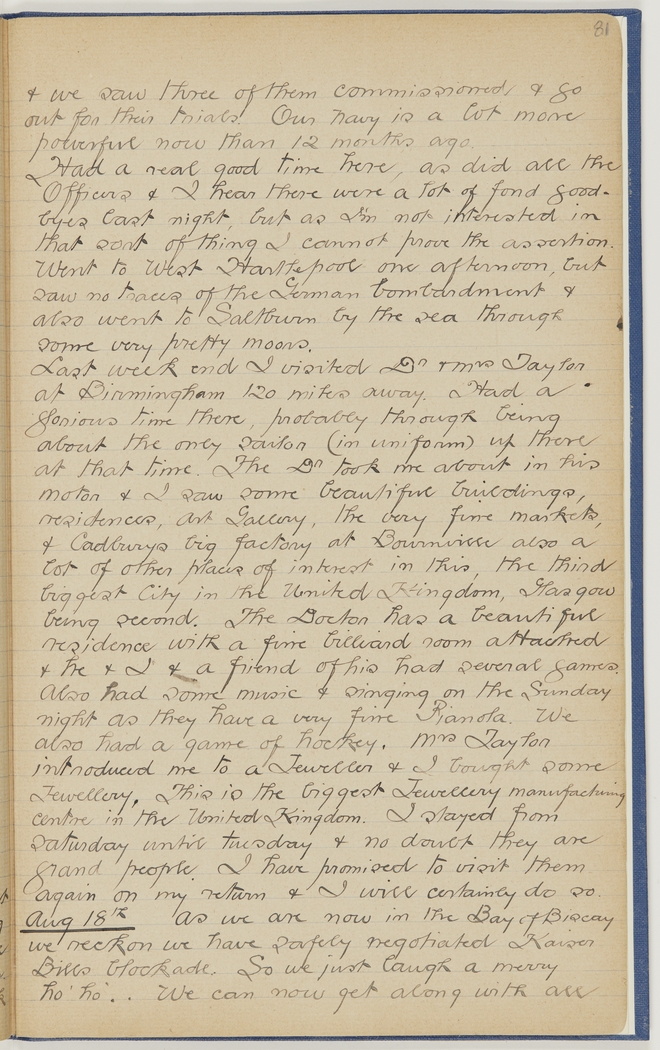 81
& we saw three of them commissioned & go
out for their trials. Our navy is a lot more
powerful now than 12 months ago.
Had a real good time here, as did all the
Officers & I hear there were a lot of fond good-
byes last night, but as I'm not interested in
that sort of thing I cannot prove the assertion.
Went to West Hartlepool one afternoon, but
saw no traces of the German bombardment &
also went to Saltburn by the sea through
some very pretty moors.
Last week end I visited Dr & Mrs Taylor
at Birmingham 120 miles away. Had a
glorious time there, probably through being
about the only sailor (in uniform) up there
at that time. The Dr took me about in his
motor & I saw some beautiful buildings,
residences, Art Gallery, the very fine markets,
& Cadburys big factory at Bournville also a
lot of other places of interest in this, the third
biggest City in the United Kingdom, Glasgow
being second. The Doctor has a beautiful
residence with a fine billiard room attached
& he & I & a friend of his had several games.
Also had some music & singing on the Sunday
night as they have a very fine Pianola. We
also had a game of hockey. Mrs Taylor
introduced me to a Jeweller & I bought some
Jewellery. This is the biggest Jewellery manufacturing
centre in the United Kingdom. I stayed from
saturday until tuesday & no doubt they are
grand people. I have promised to visit them
again on my return & I will certainly do so.
Aug 18th As we are now in the Bay of Biscay
we reckon we have safely negotiated Kaiser
Bills blockade. So we just laugh a merry
ho' ho'.. We can now get along with all